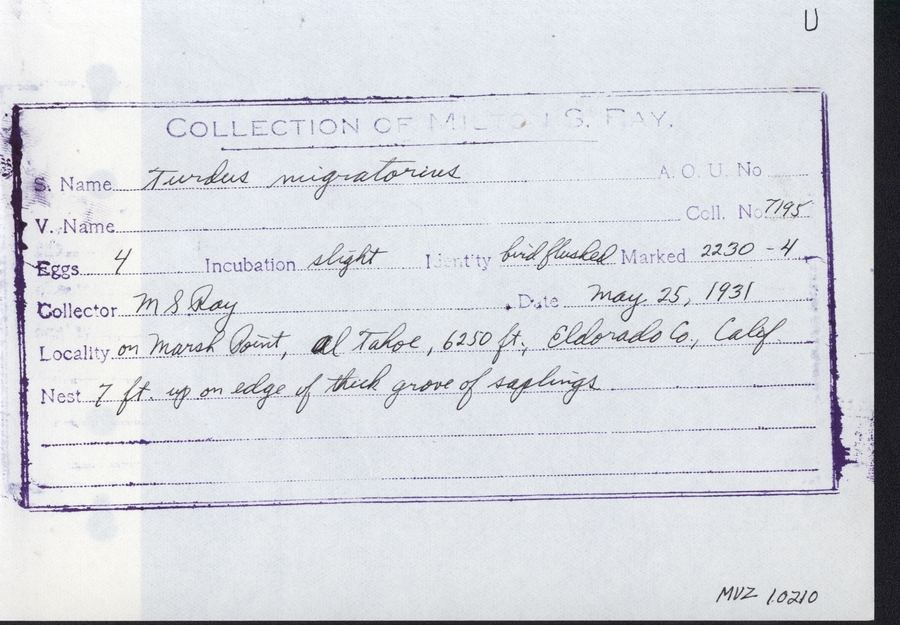 U
COLLECTION OF MILTON S. RAY.
S. Name Turdus migratorius A. O. U. No
V. Name Coll. No 7195
Eggs 4 Incubation slight Identity bird flushed Marked 2230-4
Collector M S Ray Date May 25, 1931
Locality on Marsh Point, Al Tahoe, 6250 ft., Eldorado Co., Calif.
Nest 7 ft. up on edge of thick grove of saplings
MVZ 10210